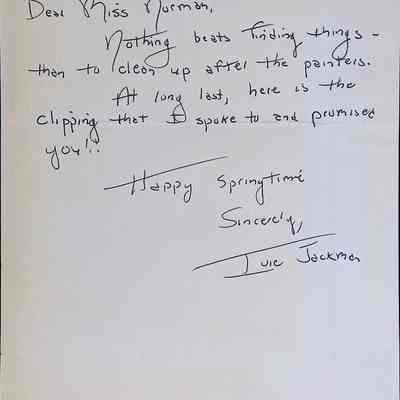 Dear Miss Norman,
Nothing beats finding things –
than to clean up after the painters.
At long last, here is the
clipping that I spoke to and promised
you!!
Happy Springtime
Sincerely,
Ivie Jackman